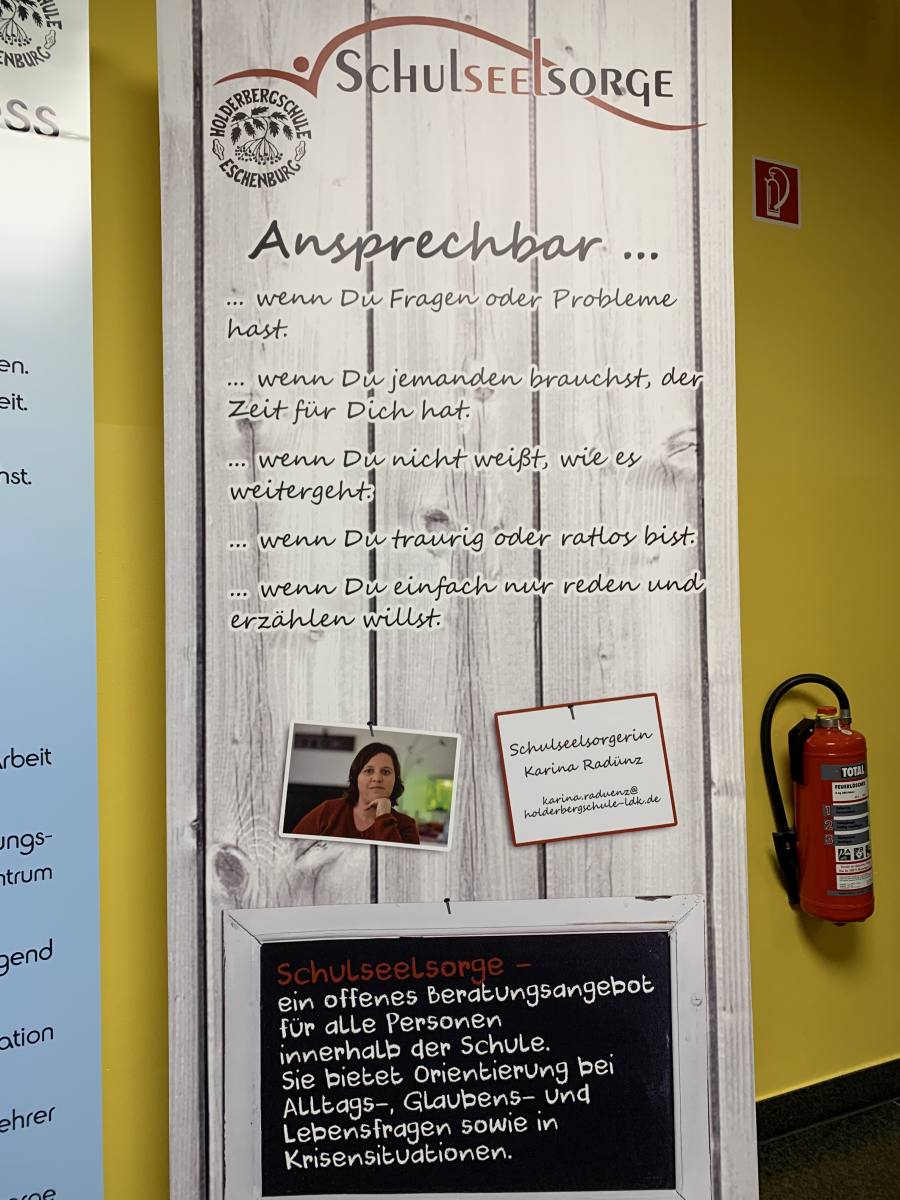 SCHULSEELSORGE
HOLDERBERGSCHULE
ESCHENBURG
Ansprechbar ...
... wenn Du Fragen oder Probleme
hast.
... wenn Du jemanden brauchst, der
Zeit für Dich hat.
... wenn Du nicht weißt, wie es
weitergeht.
... wenn Du traurig oder ratlos bist.
... wenn Du einfach nur reden und
erzählen willst.
Schulseelsorgerin
Karina Radünz
karina.raduenz@
holderbergschule-ldk.de
Schulseelsorge –
ein offenes Beratungsangebot
für alle Personen
innerhalb der Schule.
Sie bietet Orientierung bei
Alltags-, Glaubens- und
Lebensfragen sowie in
Krisensituationen.
en.
eit.
nst.
rbeit
ungs-
ntrum
gend
ation
ehrer
TOTAL
FEUERLÖSCHER
1
2
3
A
B